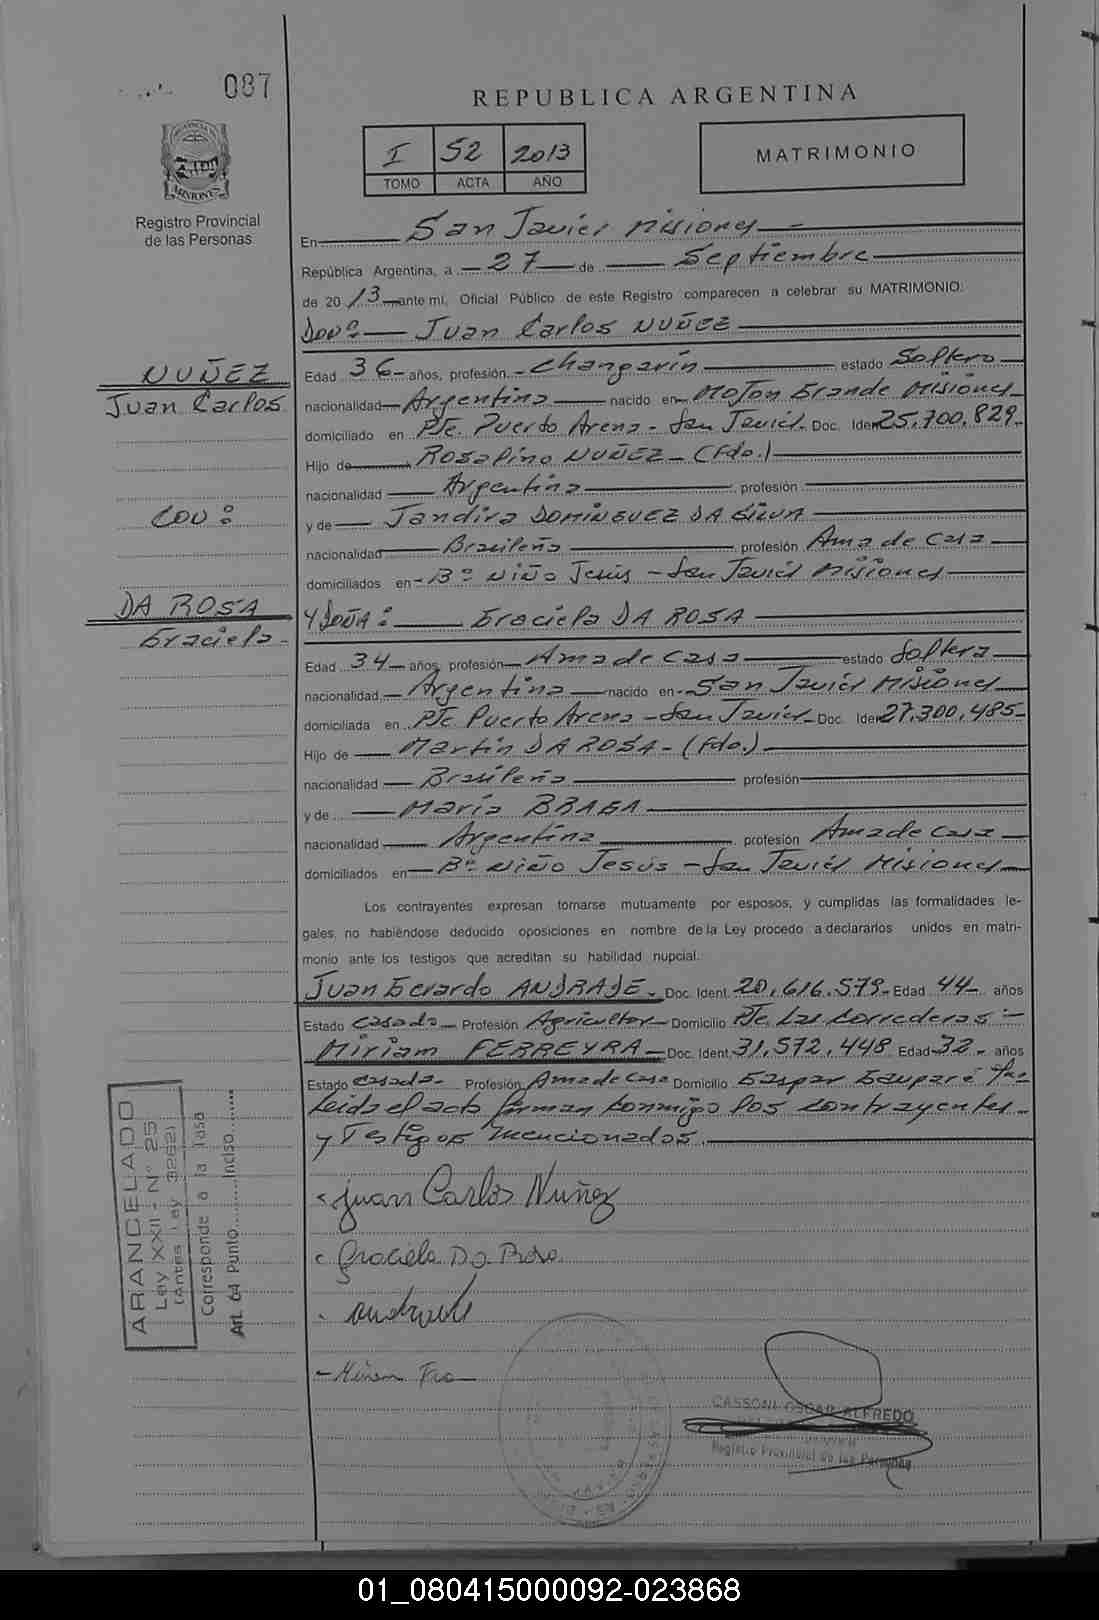 087
REPUBLICA ARGENTINA
I 52 2013
TOMO ACTA AÑO
MATRIMONIO
MISIONES
Registro Provincial
de las Personas
En San Javier Misiones
República Argentina, a 27 de Septiembre
de 2013 ante mi, Oficial Público de este Registro comparecen a celebrar su MATRIMONIO:
Don: Juan Carlos NUÑEZ
NUÑEZ
Juan Carlos
CON:
DA ROSA
Graciela
Edad 36 años, profesión Changarín estado Soltero
nacionalidad Argentina nacido en Mojon Grande Misiones
domiciliado en Pje. Puerto Arena - San Javier Doc. Iden 25.700.829
Hijo de Rosalino NUÑEZ (fdo.)
nacionalidad Argentina profesión
y de Jandira DOMINGUEZ DA SILVA
nacionalidad Brasileña profesión Ama de Casa
domiciliados en Bº Niño Jesús - San Javier Misiones
Y DOÑA: Graciela DA ROSA
Edad 34 años, profesión Ama de Casa estado Soltera
nacionalidad Argentina nacido en San Javier Misiones
domiciliada en Pje Puerto Arena - San Javier Doc. Iden 27.300.485
Hijo de Martin DA ROSA - (fdo.)
nacionalidad Brasileña profesión
y de María BRAGA
nacionalidad Argentina profesión Ama de Casa
domiciliados en Bº Niño Jesús - San Javier Misiones
Los contrayentes expresan tomarse mutuamente por esposos, y cumplidas las formalidades le-
gales, no habiéndose deducido oposiciones en nombre de la Ley procedo a declararlos unidos en matri-
monio ante los testigos que acreditan su habilidad nupcial.
Juan Gerardo ANDRADE. Doc. Ident. 20.616.579 Edad 44 años
Estado Casado Profesión Agricultor Domicilio Pje. Las Correderas
Miriam FERREYRA Doc. Ident. 31.572.448 Edad 32 años
Estado Casada Profesión Ama de Casa Domicilio Gaspar
Leida el acta firman conmigo los contrayentes
y Testigos mencionados.
ARANCELADO
Ley XXII - N° 25
(Antes Ley 3262)
Corresponde a la Tasa
Art. 64 Punto.........Inciso.........
Juan Carlos Nuñez
Graciela Da Rosa
Andrade
CASSONI OSCAR ALFREDO
Registro Provincial de las Personas
01_080415000092-023868